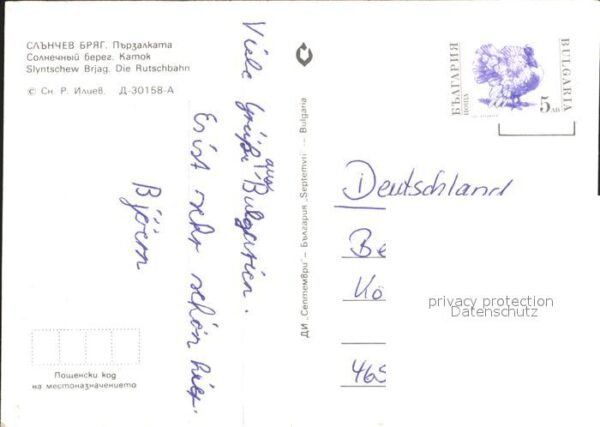 СЛЪНЧЕВ БРЯГ. Пързалката
Солнечный берег. Каток
Slyntschew Brjag. Die Rutschbahn
© Сн. Р. Илиев. Д-30158-А
Viele Grüße aus Bulgarien.
Es ist sehr schön hier.
Björn
Пощенски код
на местоназначението
ДИ „Септември" — България „Septemvri" — Bulgaria
БЪЛГАРИЯ
ПОЩА
5 ЛВ
BULGARIA
Deutschland
Be
Kö
privacy protection
Datenschutz
465